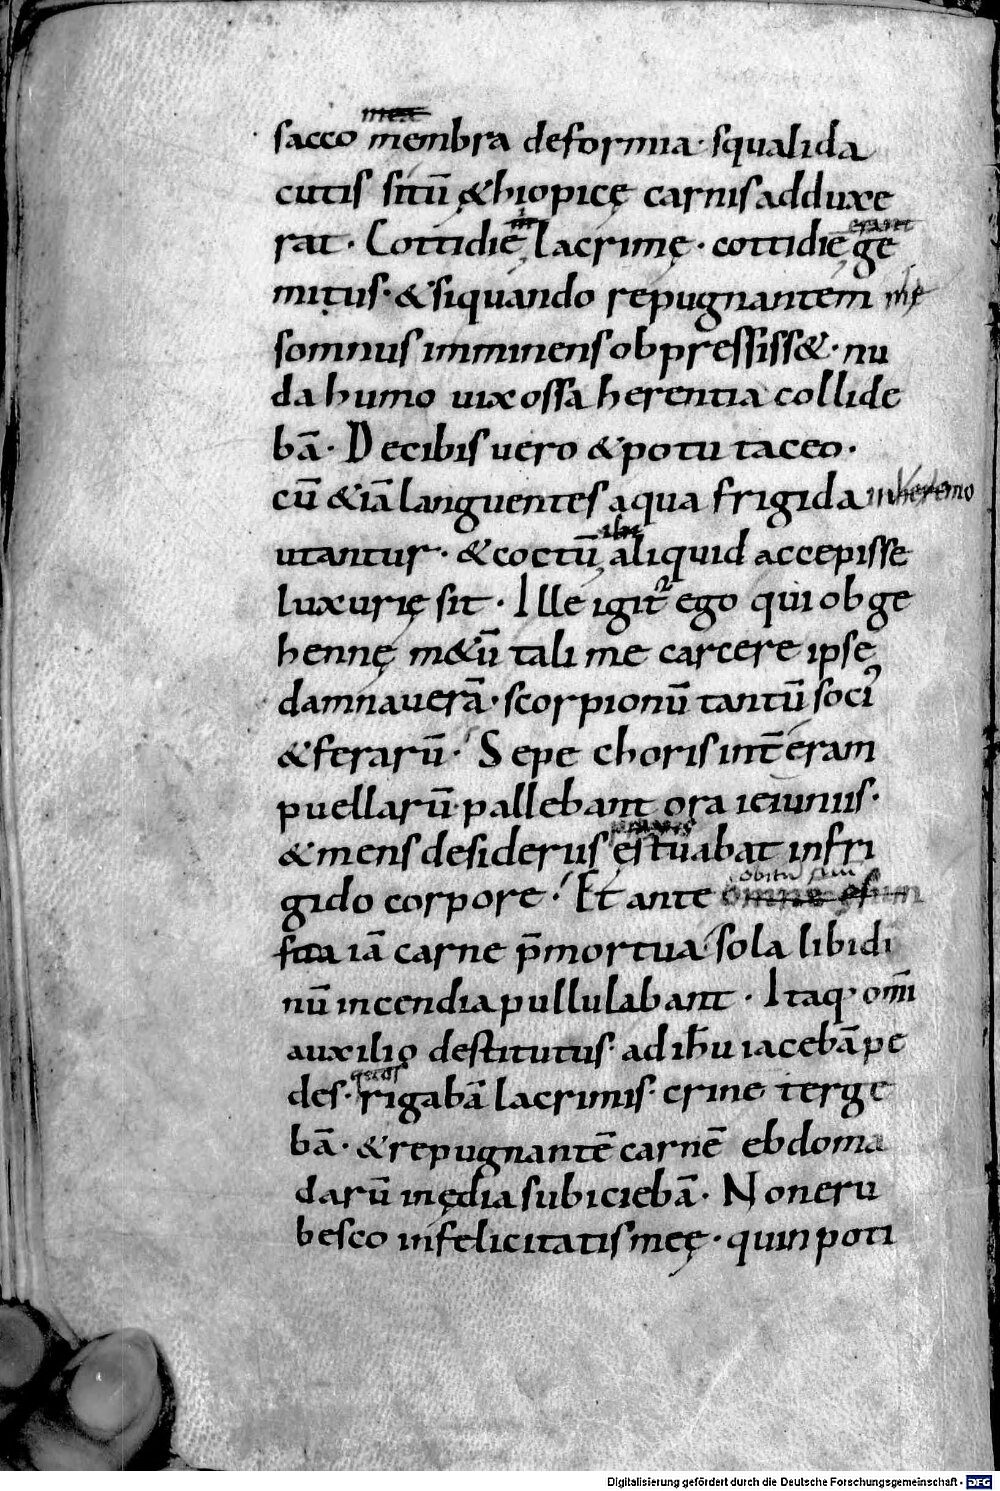 mea
sacco membra deformia· squalida
cutis sitū &hiopicę carnis adduxe
rat· Cottidiē lacrimę· cottidiē ge
erant
mitus· & siquando repugnantem me
somnus imminens obpressiss&· nu
da humo uix ossa herentia collide
bā· Decibis uero & potu taceo·
cū & iā languentes aqua frigida in heremo
utantur· & coctū aliquid accepisse
luxurię sit· Ille igit ego qui ob ge
hennę m&ū tali me carcere ipse
damnauerā· scorpionū tantū soci
& ferarū· Sepe choris int̄eram
puellarū· pallebant ora ieiuniis·
& mens desideriis ęstuabat infri
gido corpore· Et ante omnē
obitū suū
sua iā carne p̄mortua sola libidi
nū incendia pullulabant· Itaq· om̄i
auxilio destitutus· ad ih̄u iacebā pe
des· rigabā lacrimis· crine terge
bā· & repugnantē carnē ebdoma
darū inędia subiciebā· Non eru
besco infelicitatis meę· quin poti
Digitalisierung gefördert durch die Deutsche Forschungsgemeinschaft - DFG